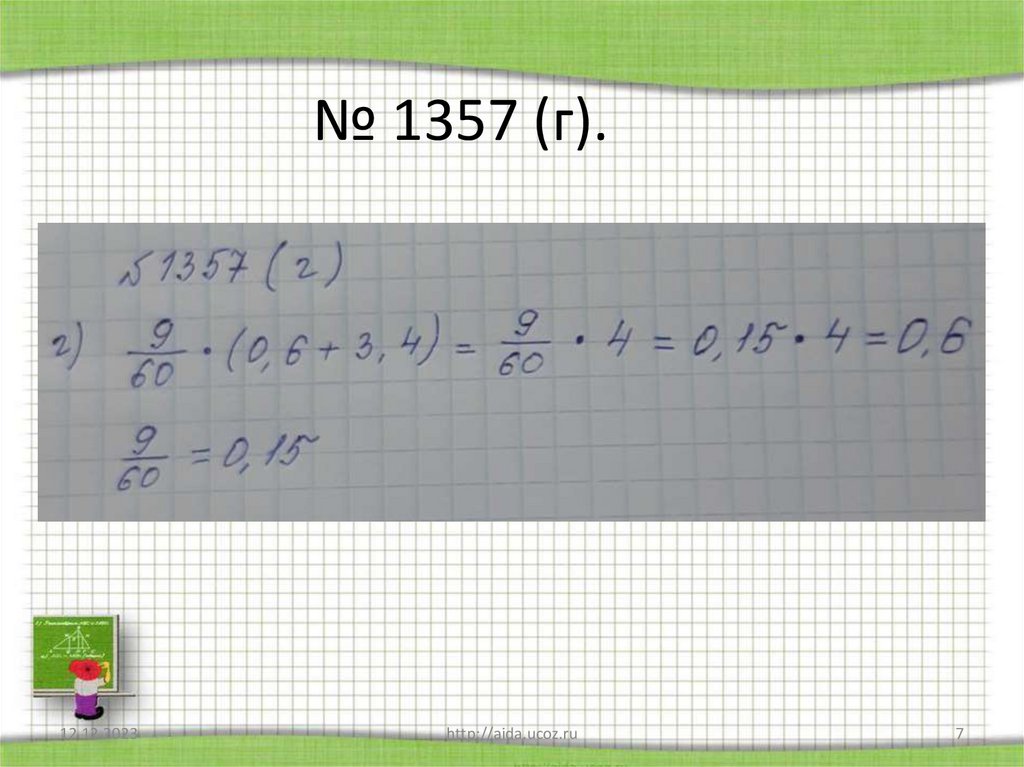 № 1357 (г).
№1357 (г)
г) 9/60 · (0,6 + 3,4) = 9/60 · 4 = 0,15 · 4 = 0,6
9/60 = 0,15
12.12.2023
http://aida.ucoz.ru
7